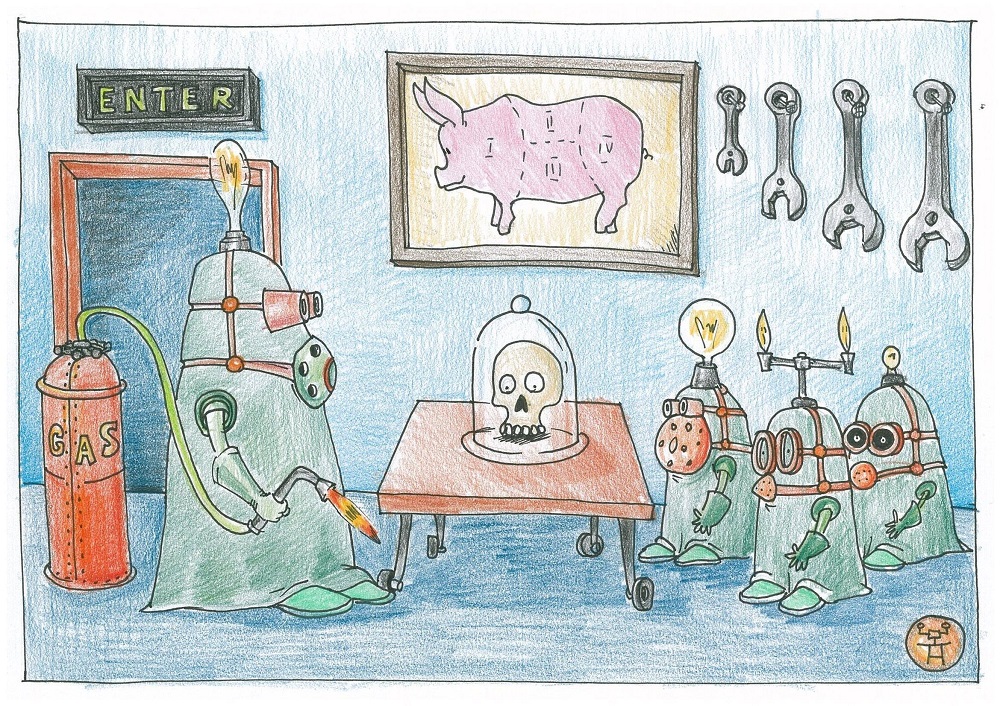 ENTER
I
II
III
IV
GAS